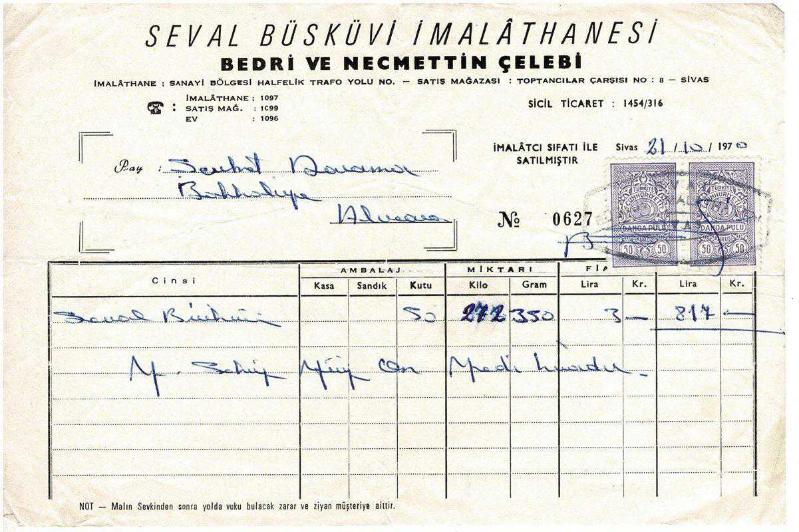 SEVAL BÜSKÜVİ İMALÂTHANESİ
BEDRİ VE NECMETTİN ÇELEBİ
İMALÂTHANE : SANAYİ BÖLGESİ HALFELİK TRAFO YOLU NO. — SATIŞ MAĞAZASI : TOPTANCILAR ÇARŞISI NO : 8 — SİVAS
☎ : İMALÂTHANE : 1097
SATIŞ MAĞ. : 1099
EV : 1096
SİCİL TİCARET : 1454/316
Bay :
İMALÂTCI SIFATI İLE
SATILMIŞTIR
Sivas 21/10/1970
№ 0627
DAMGA PULU DAMGA PULU
50 50 50 50
Cinsi AMBALAJ MİKTARI
Kasa Sandık Kutu Kilo Gram Lira Kr. Lira Kr.
Seval 50 272 350 3 — 817 —
NOT — Malın Sevkinden sonra yolda vuku bulacak zarar ve ziyan müşteriye aittir.